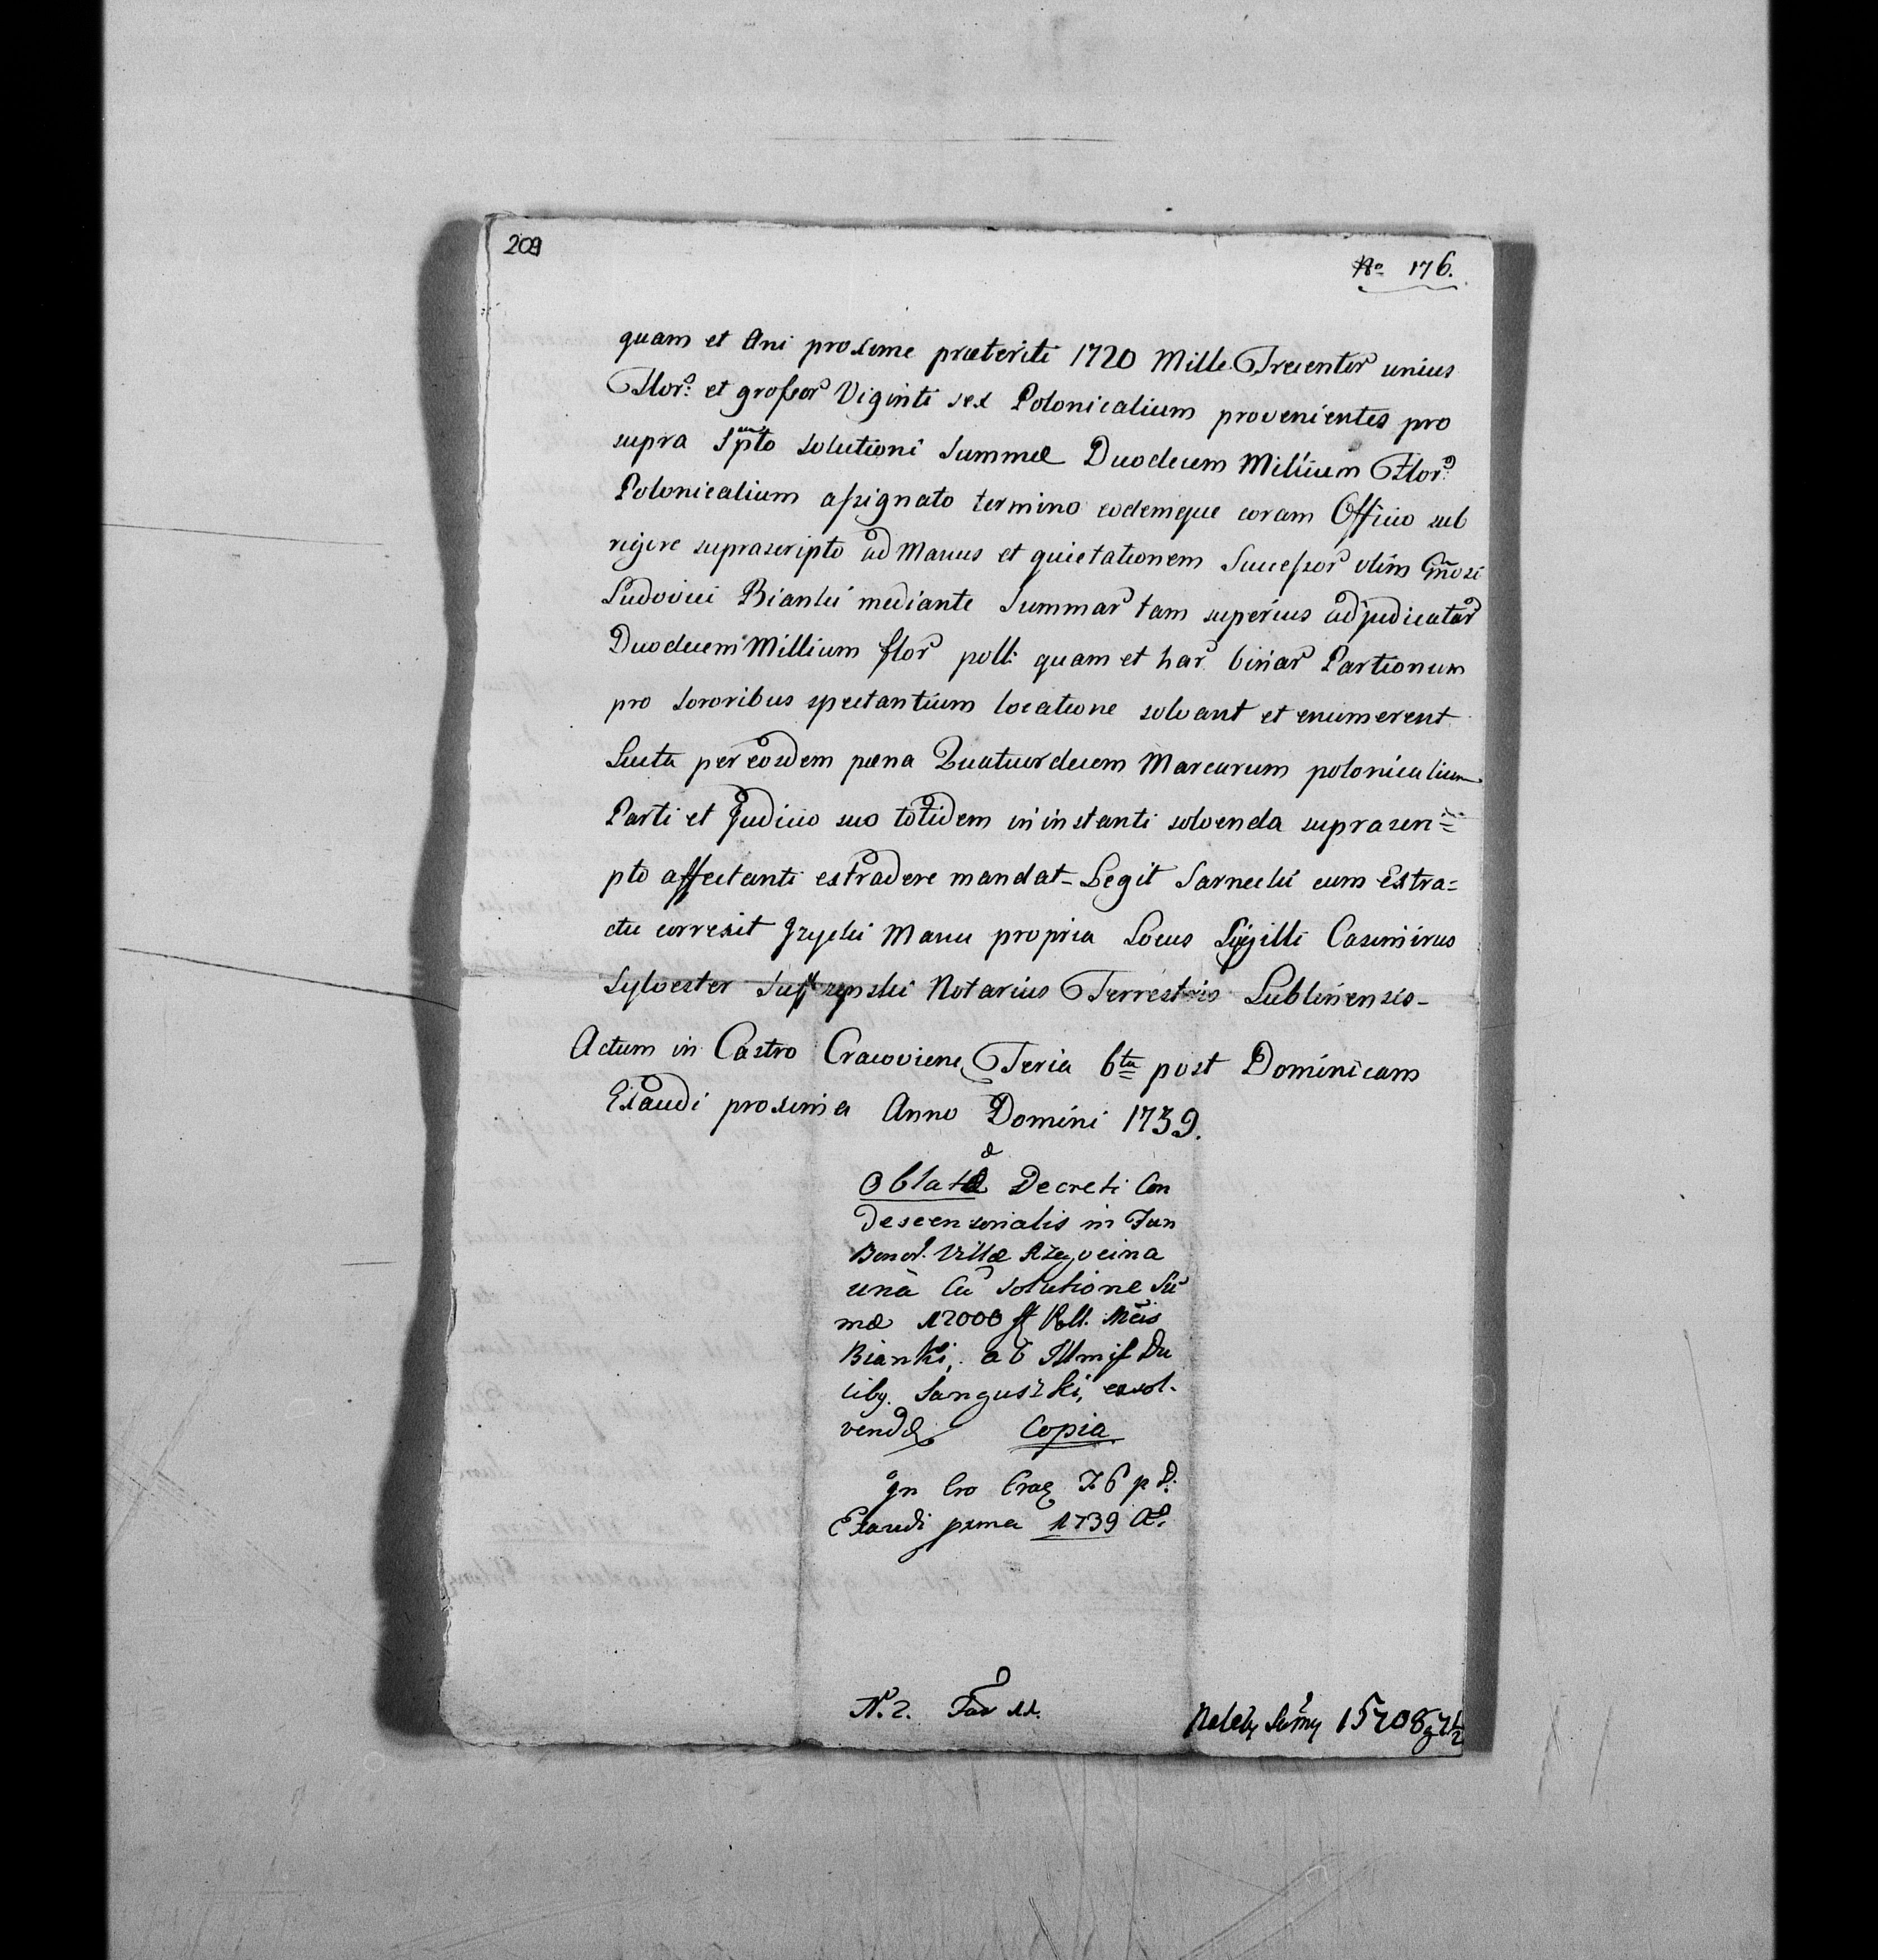 209
No 176.
quam et Ani proxime præteriti 1720 Mille Trecentor unius
Flor: et grossor Viginti sex Polonicalium provenientes pro
supra spto solutioni Summæ Duodecim Millium Flor:
Polonicalium assignato termino eodemque coram Officio sub
rigore suprascripto ad Manus et quietationem Successor olim Gnosi
Ludovici Bianki mediante Summar tam superius adjudicatar
Duodecem Millium flor poll: quam et har binar Partionum
pro sororibus spectantium locatione solvant et enumerent
Lucta per eosdem pæna Quatuordecem Marcarum polonicalium
Parti et Judicio suo totidem in instanti solvenda suprascri=
pto affectanti extradere mandat_ Legit Sarnecki cum Extra=
ctu correxit Jzycki Manu propria Locus Sigilli Casimirus
Sylvester Notarius Terrestris Lublinensis_
Actum in Castro Cracoviens Feria 6ta post Dominicam
Exaudi proxima Anno Domini 1739.
Oblatæ Decreti Con
descensorialis in Fun
Bonor. Villæ
unà Cu solutione Su
mæ 12000 fl Poll. Mcis
Bianki, ab Illmis Du
cibg. Sanguszki, exsol.
vendæ Copia
Jn Cro Crac F. 6 p D:
Exaudi pxma 1739 A:
N. 2.
Sumy 15708